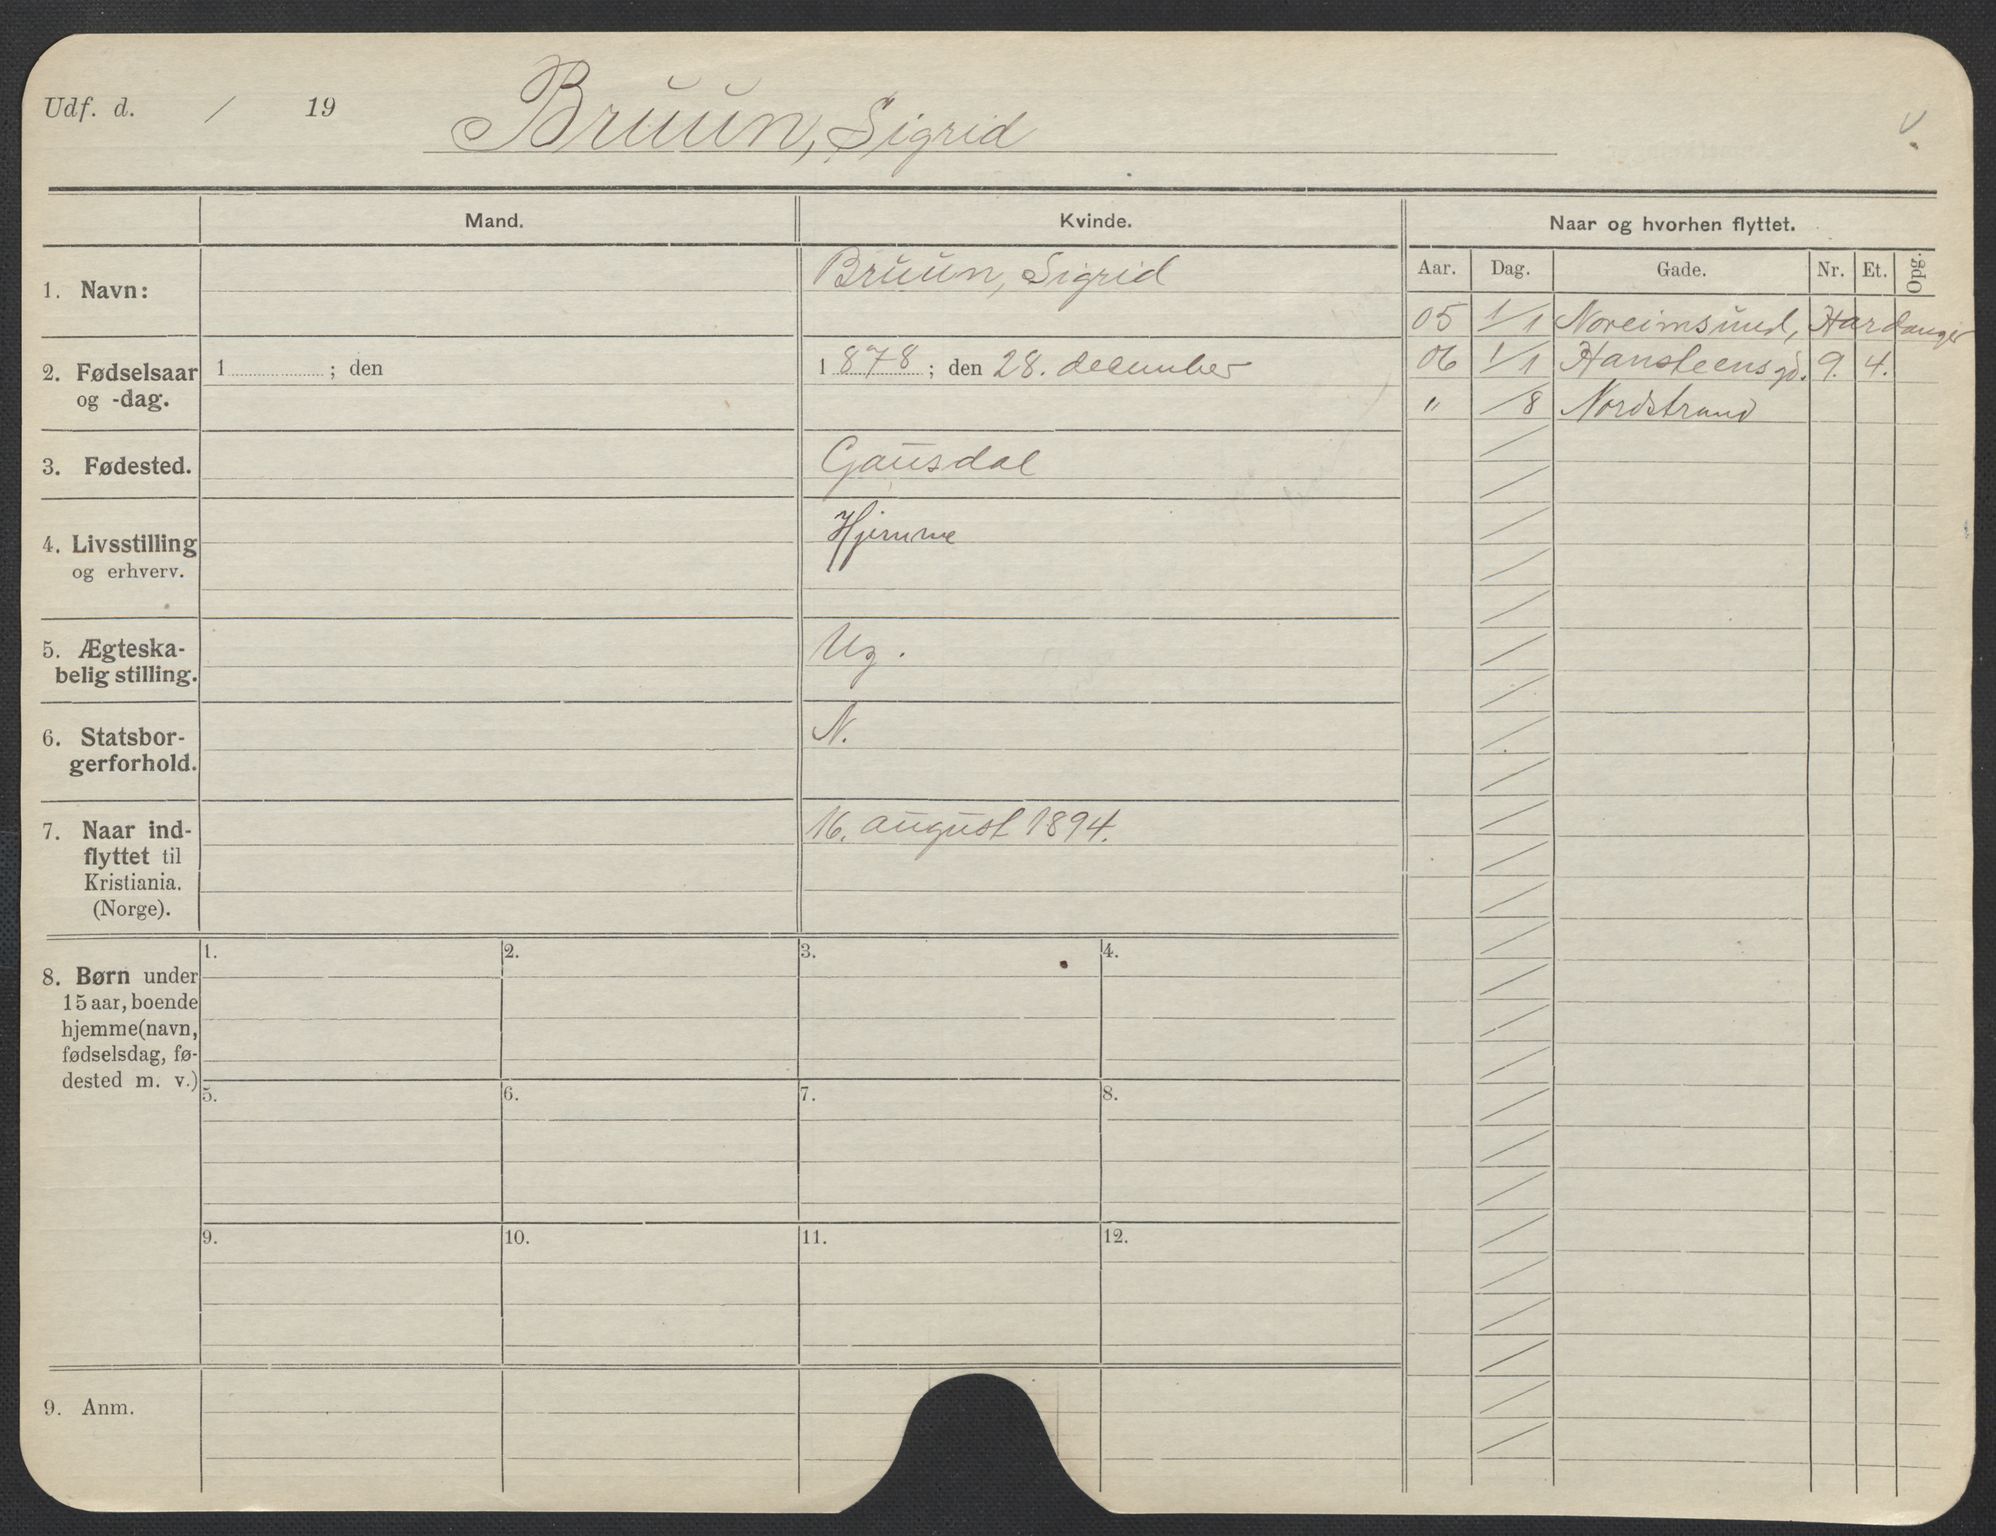 Udf. d. / 19
Bruun, Sigrid
Mand.
Kvinde.
Naar og hvorhen flyttet.
Aar. Dag. Gade. Nr. Et. Opg.
1. Navn:
Bruun, Sigrid
05 1/1 Noreimsund, Hardanger
06 1/1 Hansteensgd. 9. 4.
" /8 Nordstrand
2. Fødselsaar
og -dag.
1 ; den
1 878 ; den 28. december
3. Fødested.
Gausdal
4. Livsstilling
og erhverv.
Hjemme
5. Ægteska-
belig stilling.
Ug.
6. Statsbor-
gerforhold.
N.
7. Naar ind-
flyttet til
Kristiania.
(Norge).
16. august 1894.
8. Børn under
15 aar, boende
hjemme (navn,
fødselsdag, fø-
dested m. v.)
1. 2. 3. 4.
5. 6. 7. 8.
9. 10. 11. 12.
9. Anm.